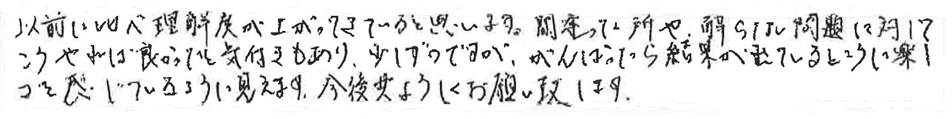 以前に比べ理解度が上がってきていると思います。間違った所や、解らない問題に対して
こうやれば良かったと気付きもあり、少しずつですが、がんばったら結果が出ているところに楽し
さを感じているように見えます。今後共よろしくお願い致します。